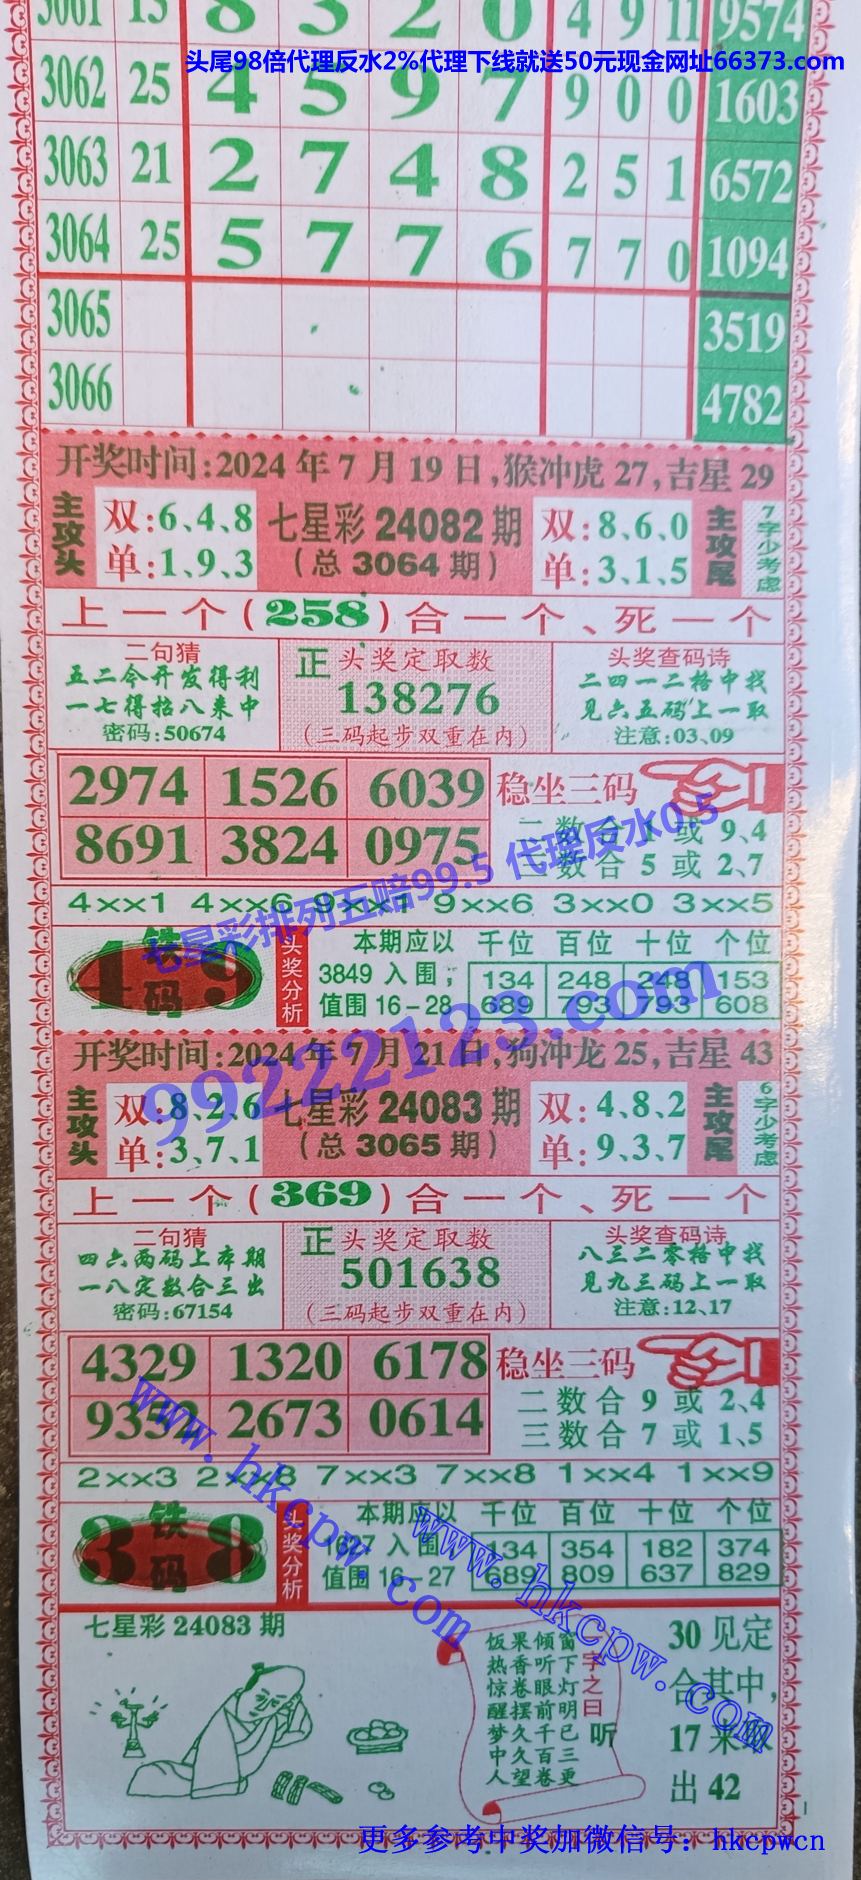 3061 15 8 3 2 0 4 9 11 9574
头尾98倍代理反水2%代理下线就送50元现金网址66373.com
3062 25 4 5 9 7 9 0 0 1603
3063 21 2 7 4 8 2 5 1 6572
3064 25 5 7 7 6 7 7 0 1094
3065 3519
3066 4782
开奖时间:2024年7月19日,猴冲虎27,吉星29
主攻头
双:6、4、8
单:1、9、3
七星彩24082期
(总3064期)
双:8、6、0
单:3、1、5
主攻尾
7字少考虑
上一个(258)合一个、死一个
二句猜
五二今开发得利
一七得招八来中
密码:50674
正 头奖定取数
138276
(三码起步双重在内)
头奖查码诗
二四一二格中找
见六五码上一取
注意:03、09
2974 1526 6039
8691 3824 0975
稳坐三码
二数合1或9、4
三数合5或2、7
4××1 4××6 9××1 9××6 3××0 3××5
七星彩排列五赔99.5 代理反水0.5
4铁码9
头奖分析
本期应以 千位 百位 十位 个位
3849入围; 134 248 248 153
值围16-28 689 793 793 608
99222123.com
开奖时间:2024年7月21日,狗冲龙25,吉星43
主攻头
双:8、2、6
单:3、7、1
七星彩24083期
(总3065期)
双:4、8、2
单:9、3、7
主攻尾
6字少考虑
上一个(369)合一个、死一个
二句猜
四六两码上本期
一八定数合三出
密码:67154
正 头奖定取数
501638
(三码起步双重在内)
头奖查码诗
八三二零格中找
见九三码上一取
注意:12、17
4329 1320 6178
9352 2673 0614
稳坐三码
二数合9或2、4
三数合7或1、5
2××3 2××8 7××3 7××8 1××4 1××9
www.hkcpw.com
3铁码8
头奖分析
本期应以 千位 百位 十位 个位
1627入围 134 354 182 374
值围16-27 689 809 637 829
www.hkcpw.com
七星彩24083期
一字之曰
听
窗下灯明已三更
倾听眼前千百卷
果香卷摆久久望
饭热惊醒梦中人
30见定
合其中,
17来
出42
更多参考中奖加微信号：hkcpwcn